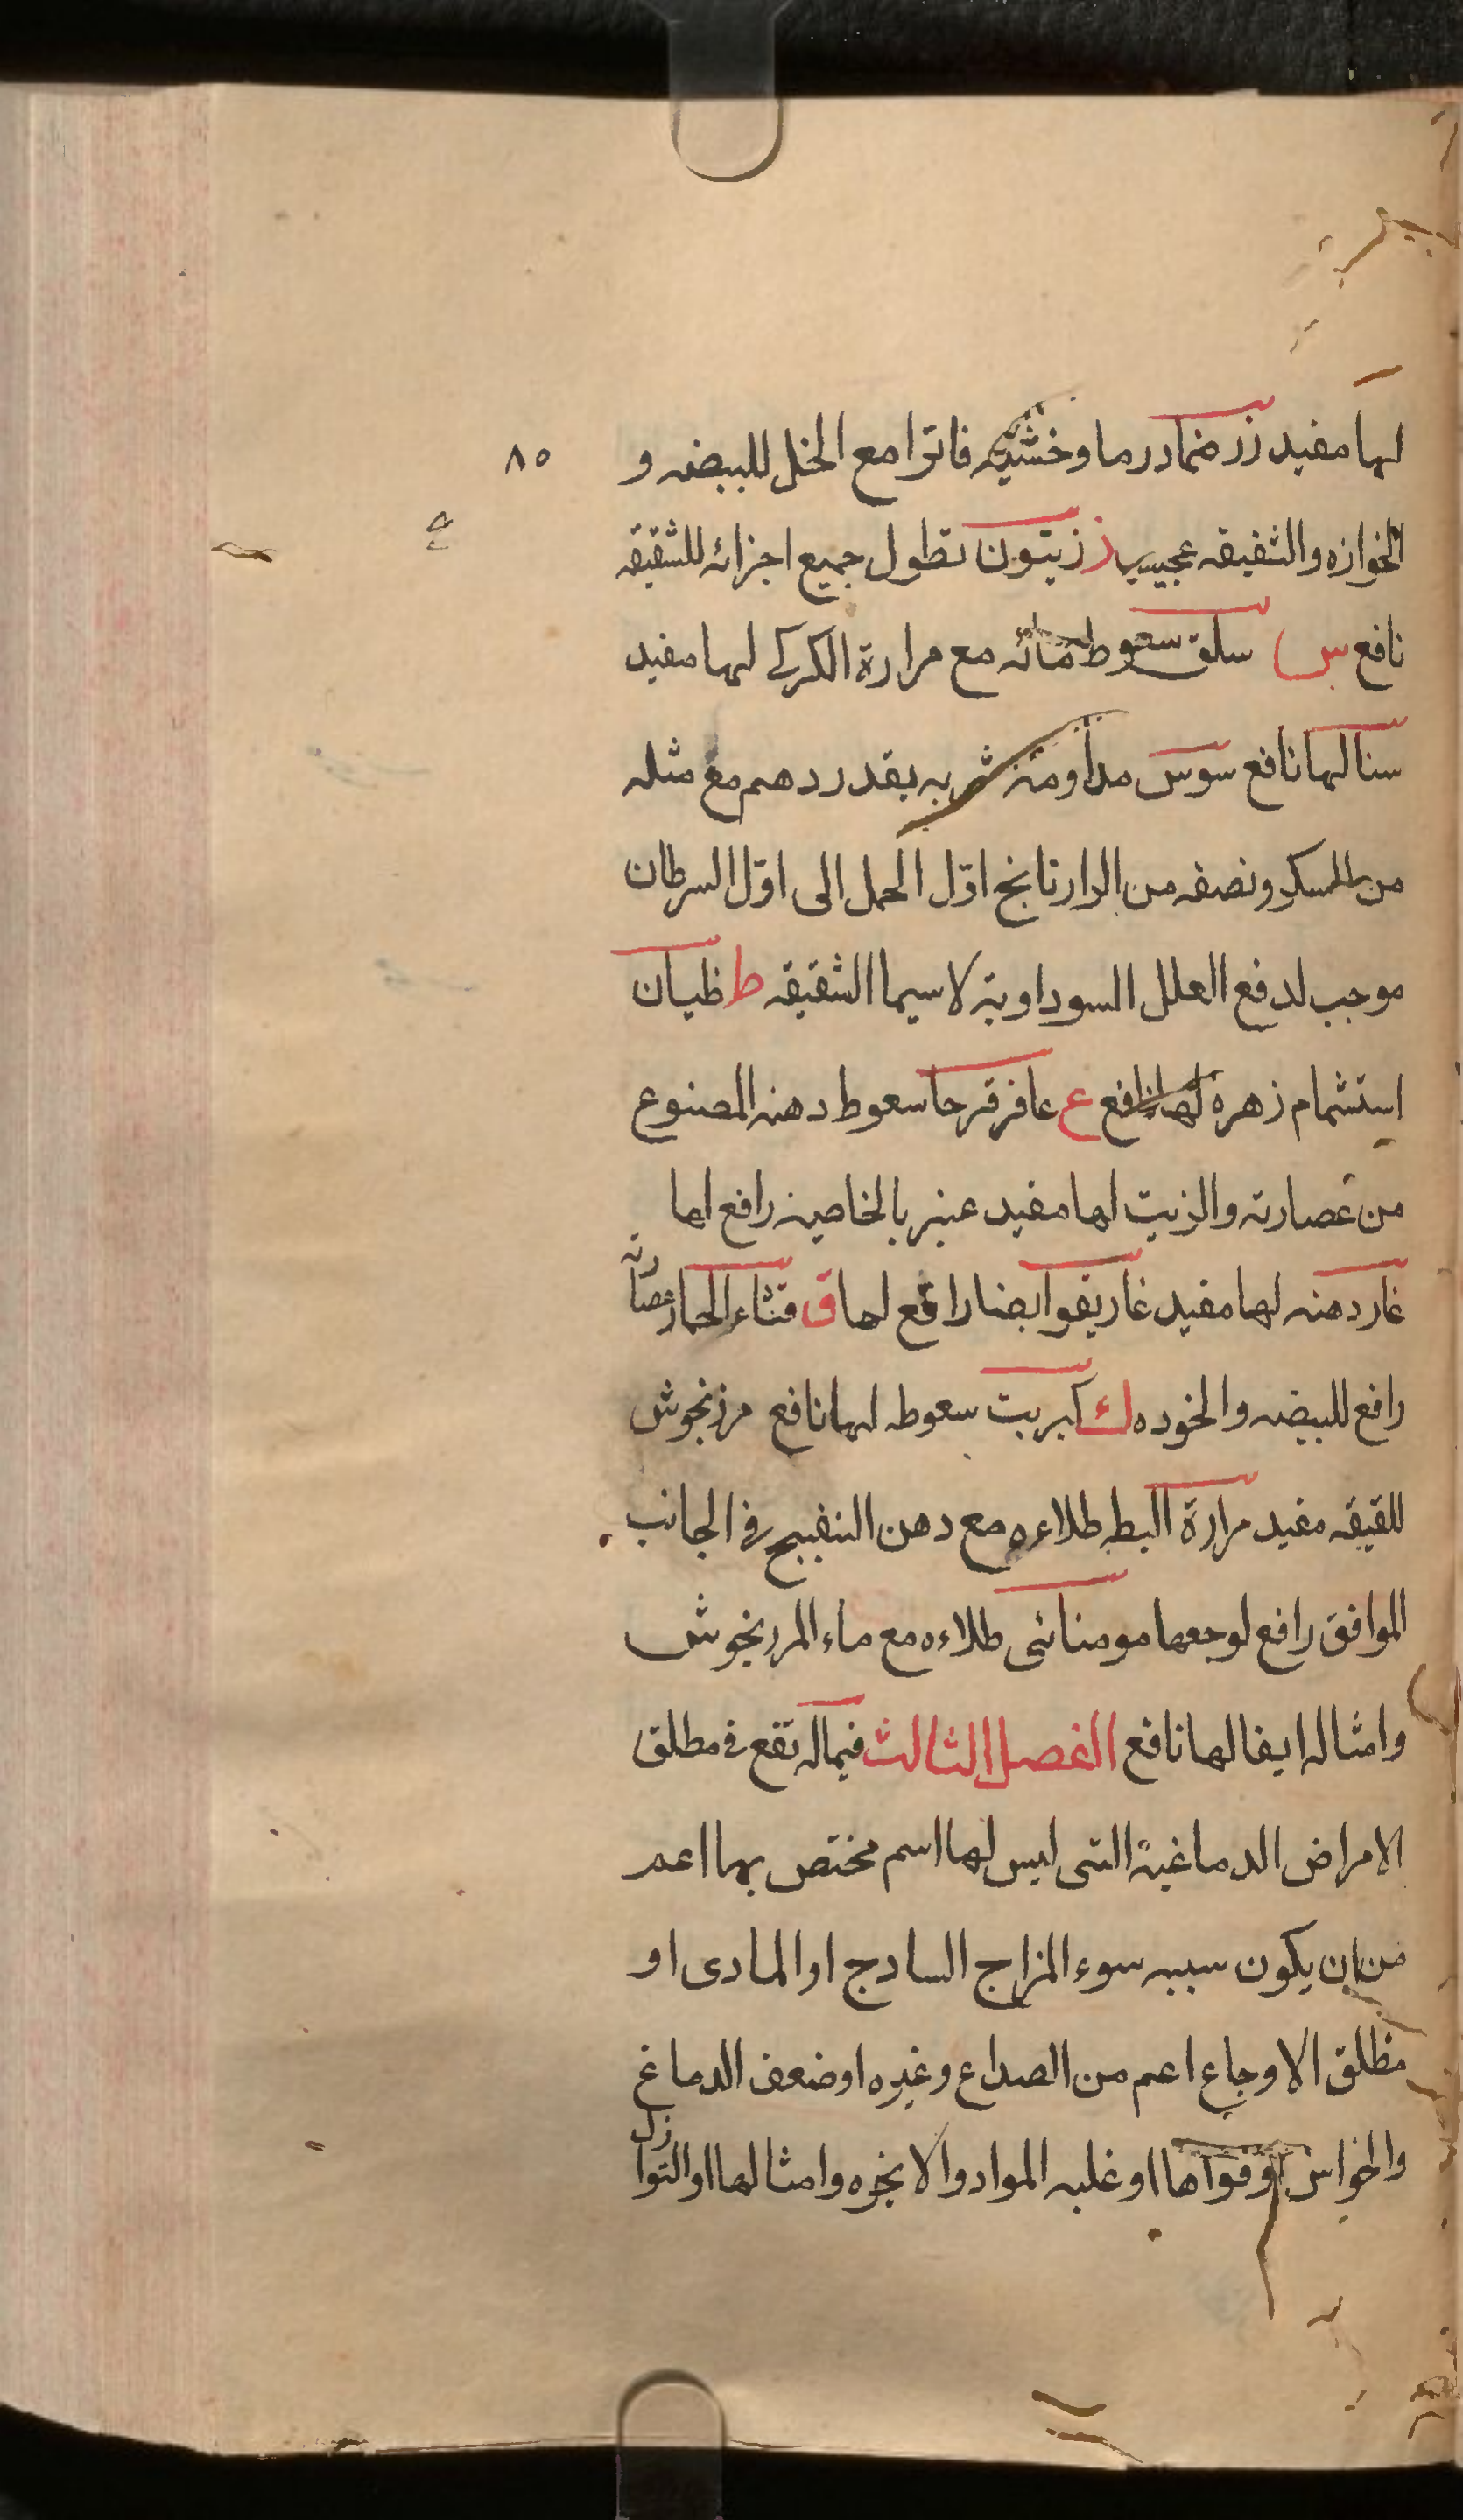 لها مفيد زر ضماد رماد خشبه فاترا مع الخل للبيضه و
٨٥
الخوازه والشقيقه عجيب ز زيتون نطول جميع اجزائه للشقيقه
نافع س سلق سعوط مائه مع مرارة الكركي لها مفيد
سنا لها نافع سوس مداومة شربه بقدر درهم مع مثله
من السكر ونصفه من الرازنانج اوّل الحمل الى اوّل السرطان
موجب لدفع العلل السوداوية لاسيما الشقيقه ط ظيان
استشمام زهره لها نافع ع عاقرقرحا سعوط دهنه المصنوع
من عصارته والزيت لها مفيد عنبر بالخاصية رافع لها
غار دهنه لها مفيد غاريقوا ايضا رافع لها ق قثاء الحمار عصارته
رافع للبيضه والخوده ك كبريت سعوطه لها نافع مرزنجوش
للقيقه مفيد مرارة البط طلاءه مع دهن البنفسج في الجانب
الموافق رافع لوجعها موميائى طلاءه مع ماء المرزنجوش
وامثاله ايضا لها نافع الفصل الثالث فيما له نفع في مطلق
الامراض الدماغية التى ليس لها اسم مختص بها اعم
من ان يكون سببه سوء المزاج السادج او المادى او
مطلق الاوجاع اعم من الصداع وغيره او ضعف الدماغ
والحواس او قواها او غلبه المواد والابخره وامثالها او النوازل